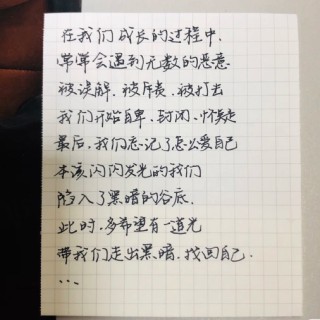 在我们成长的过程中，
常常会遇到无数的恶意
被误解、被斥责、被打击
我们开始自卑、封闭、怀疑
最后，我们忘记了怎么爱自己
本该闪闪发光的我们
陷入了黑暗的谷底，
此时，多希望有一道光
带我们走出黑暗，找回自己．
...